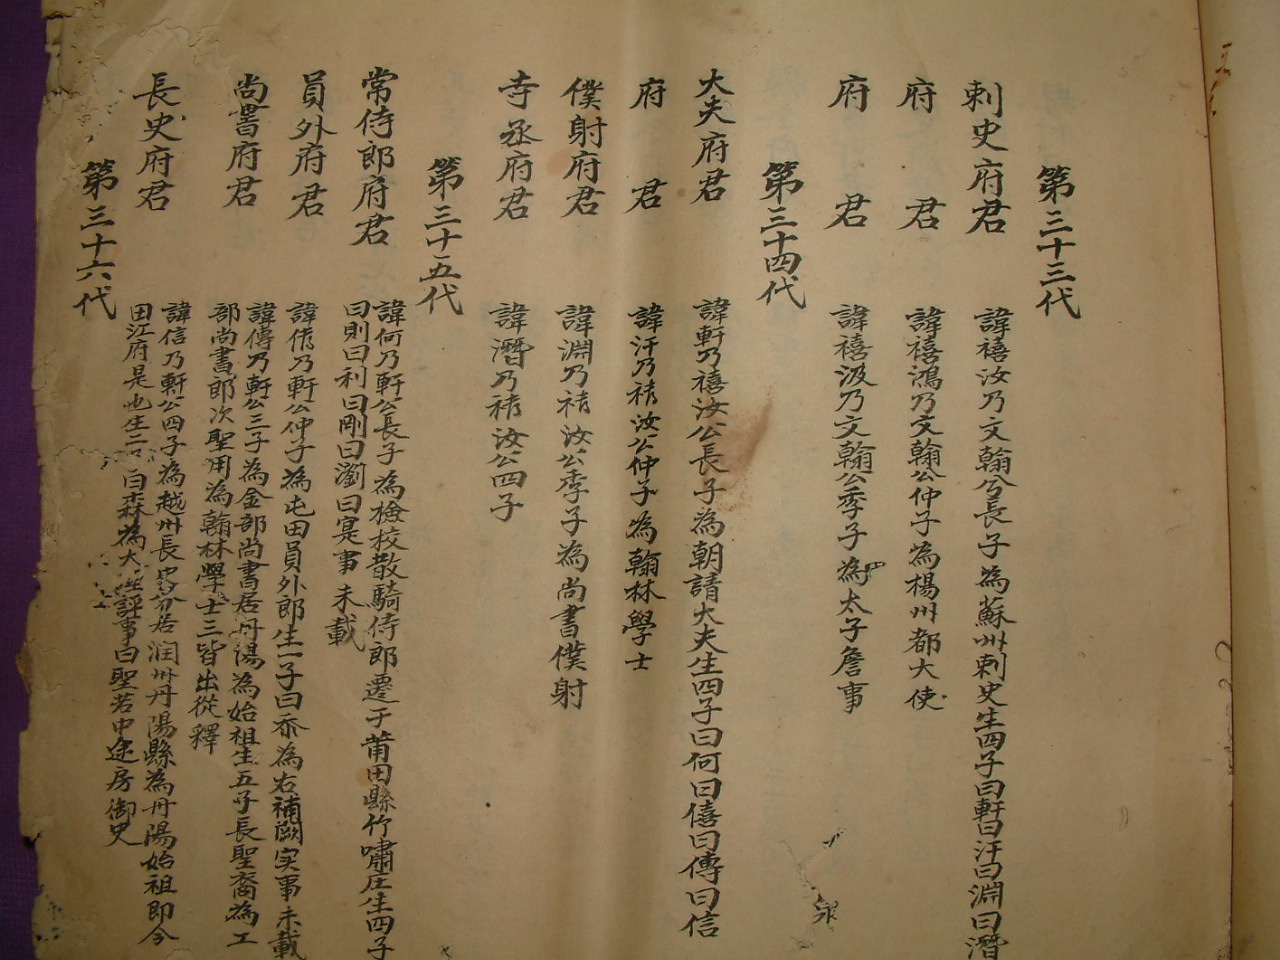 第三十三代
刺史府君　諱禧汝乃文翰公長子為蘇州刺史生四子曰軒曰汗曰淵曰潛
府君　諱禧鴻乃文翰公仲子為楊州都大使
府君　諱禧汲乃文翰公季子為太子詹事
第三十四代
大夫府君　諱軒乃禧汝公長子為朝請大夫生四子曰何曰僖曰傳曰信
府君　諱汗乃禧汝公仲子為翰林學士
僕射府君　諱淵乃禧汝公季子為尚書僕射
寺丞府君　諱潛乃禧汝公四子
第三十五代
常侍郎府君　諱何乃軒公長子為檢校散騎侍郎遷于莆田縣竹嘯庄生四子
曰則曰利曰剛曰瀏曰寔事未載
員外府君　諱乃軒公仲子為屯田員外郎生一子曰為右補闕实事未載
尚書府君　諱傳乃軒公三子為金部尚書居丹陽為始祖生五子長聖裔為工
部尚書郎次聖用為翰林學士三皆出從釋
長史府君　諱信乃軒公四子為越州長史分若润州丹陽縣為丹陽始祖即今
田江府是也生二曰森為大評事曰聖若中途房御史
第三十六代